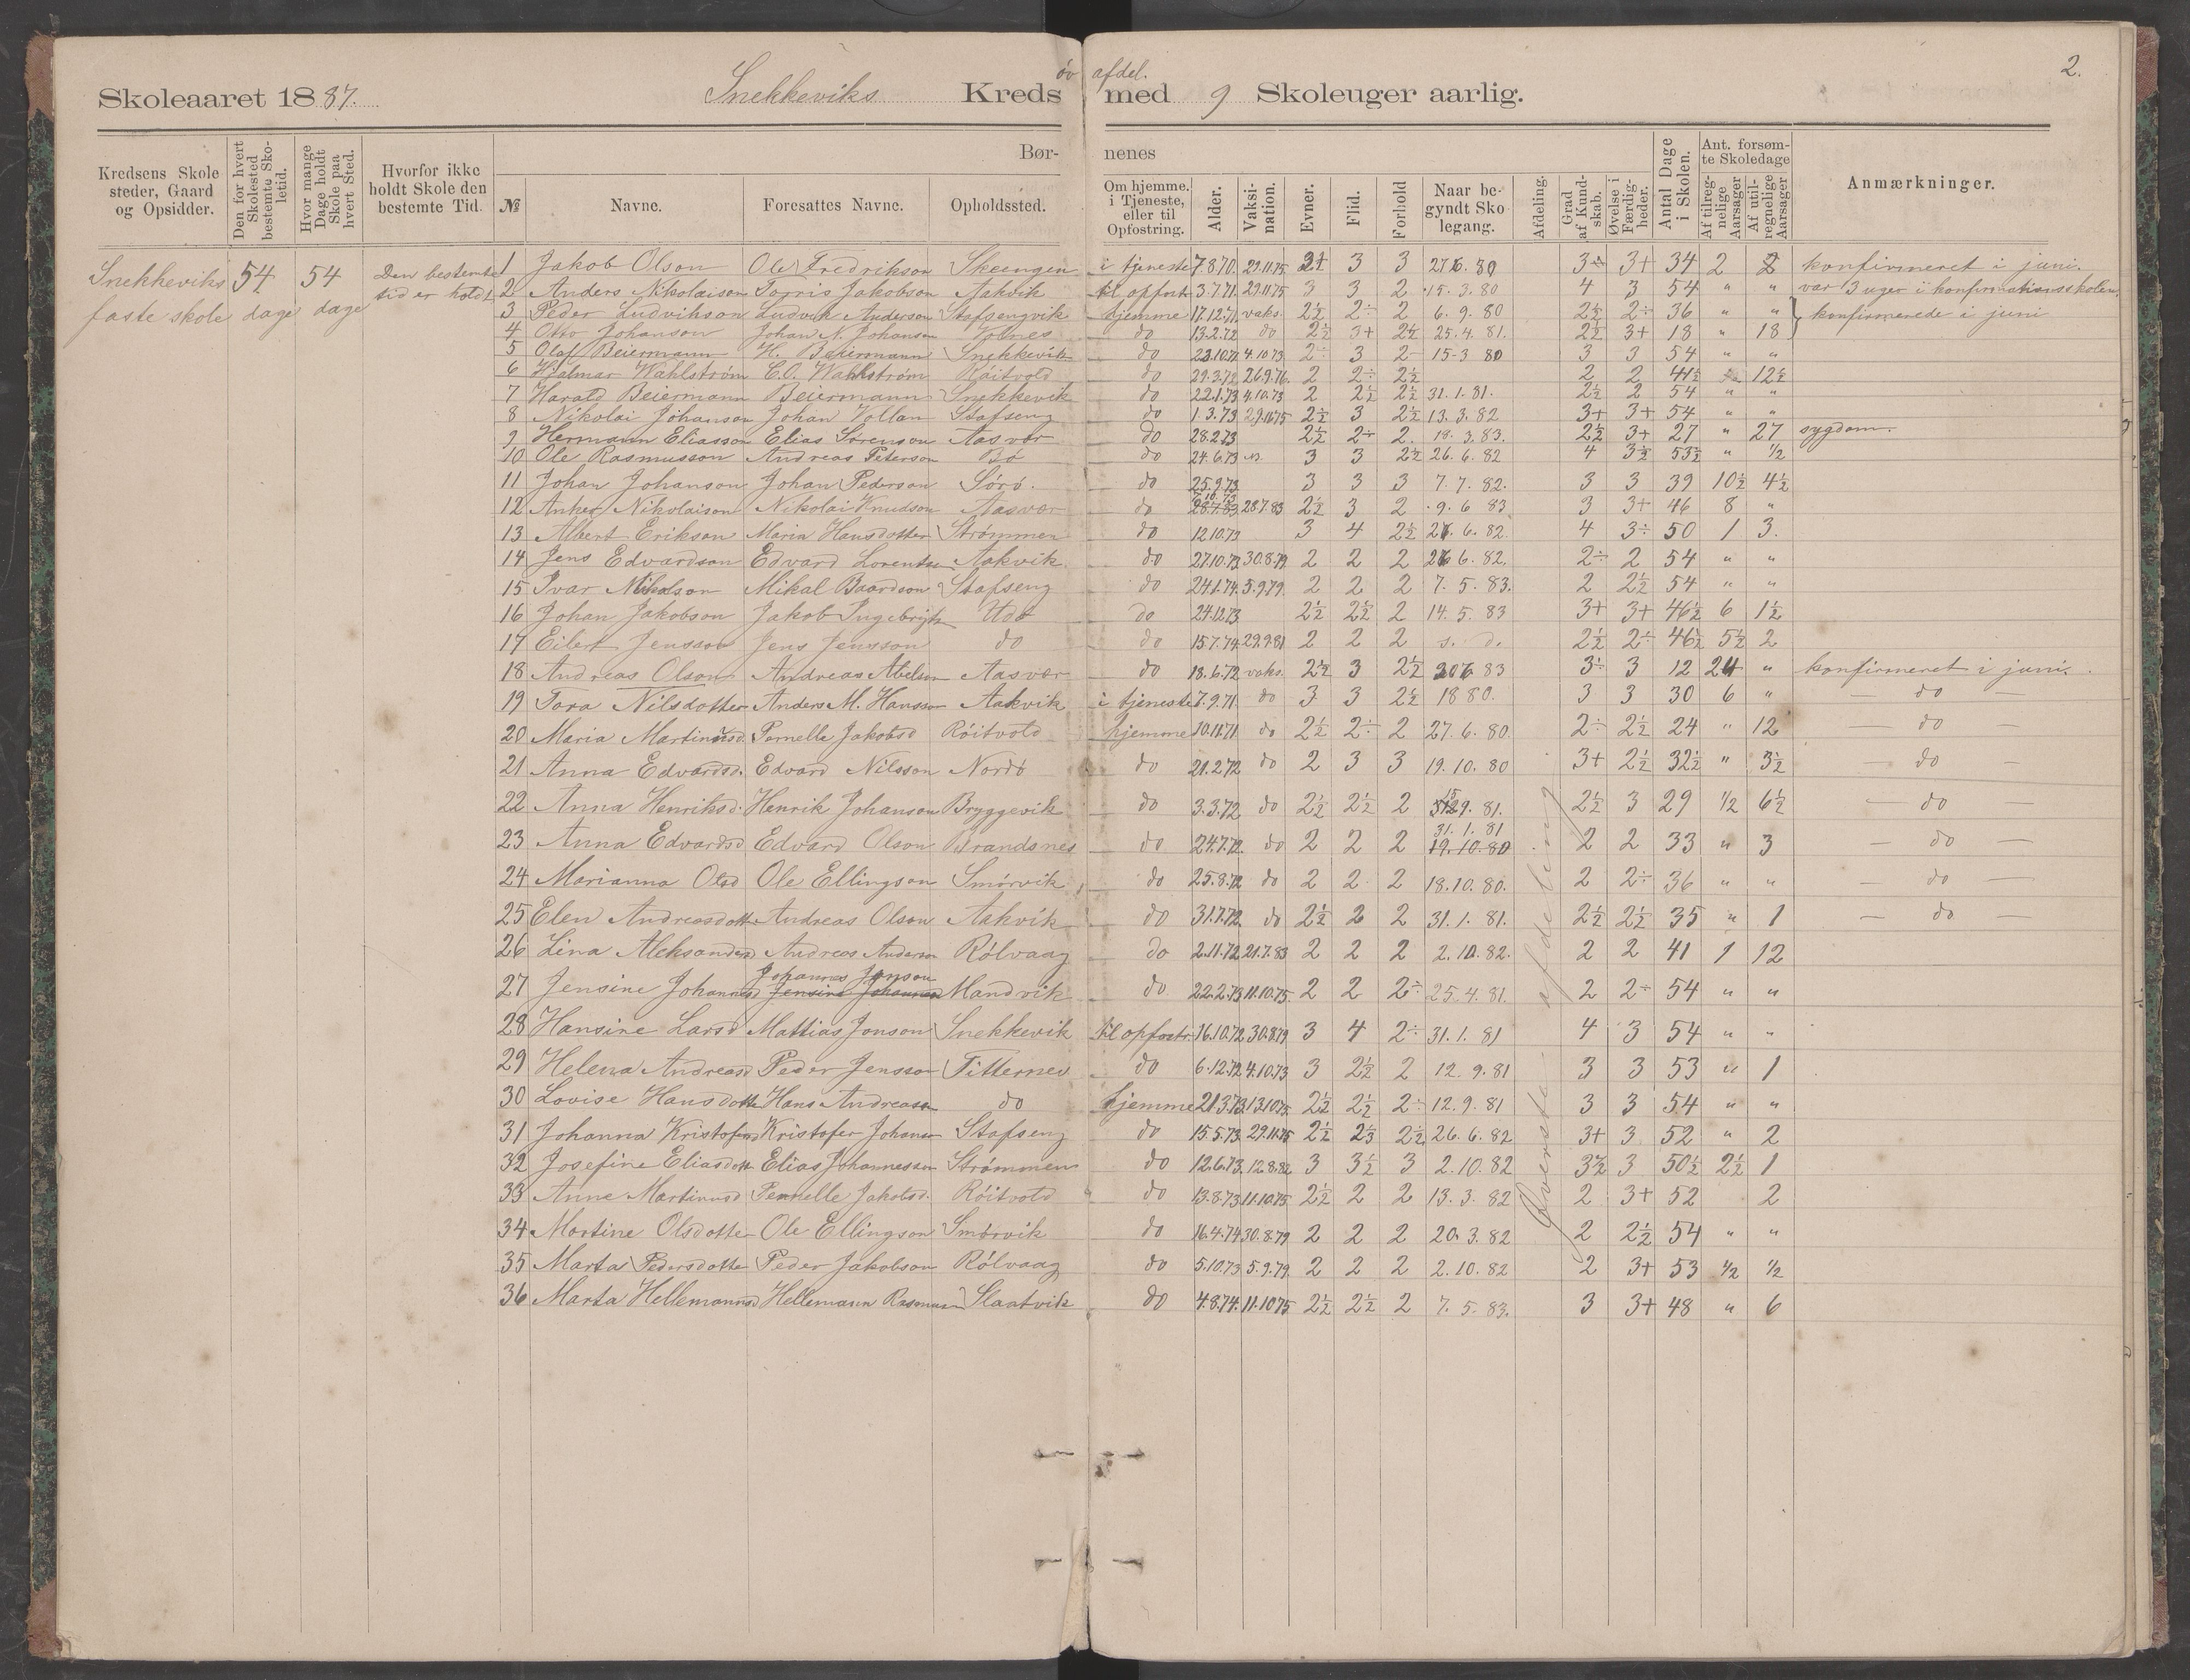 Skoleaaret 1887. Snekkeviks Kreds øv afdel. med 9 Skoleuger aarlig. 2.
Kredsens Skolesteder, Gaard og Opsidder. | Den for hvert Skolested bestemte Skoletid. | Hvor mange Dage holdt Skole paa hvert Sted. | Hvorfor ikke holdt Skole den bestemte Tid. | Børnenes
№ | Navne. | Foresattes Navne. | Opholdssted. | Om hjemme, i Tjeneste, eller til Opfostring. | Alder. | Vaksination. | Evner. | Flid. | Forhold | Naar begyndt Skolegang. | Afdeling. | Grad af Kundskab. | Øvelse i Færdigheder. | Antal Dage i Skolen. | Ant. forsømte Skoledage | Af tilregnelige Aarsager | Af utilregnelige Aarsager | Anmærkninger.
Snekkeviks faste skole | 54 dage | 54 dage | Den bestemte tid er holdt
Øverste afdeling
1 Jakob Olson | Ole Fredrikson | Skeengen | i tjeneste | 7.8.70. | 29.11.75. | 3+ | 3 | 3 | 27.6.80 | 3÷ | 3+ | 34 | 2 | 2 | konfirmeret i juni.
2 Anders Nikolaison | Torris Jakobson | Aakvik | til opfost. | 3.7.71. | 29.11.75 | 3 | 3 | 2 | 15.3.80 | 4 | 3 | 54 | " | " | var 3 uger i konfirmationsskolen.
3 Peder Ludvikson | Ludvik Anderson | Stafsengvik | hjemme | 17.12.71 | vaks. | 2½ | 2÷ | 2 | 6.9.80 | 2½ | 2÷ | 36 | " | " | konfirmerede i juni
4 Otto Johanson | Johan N. Johanson | Volnes | do | 13.2.72 | do | 2½ | 3+ | 2½ | 25.4.81. | 2½ | 3+ | 18 | " | 18
5 Olaf Beiermann | H. Beiermann | Snekkevik | do | 23.10.71 | 4.10.73 | 2÷ | 3 | 2 | 15-3 80 | 3 | 3 | 54 | " | "
6 Hjalmar Wahlstrøm | C.O. Wahlstrøm | Røitvold | do | 29.3.72 | 26.9.76. | 2 | 2÷ | 2½ | 2 | 2 | 41½ | 12½
7 Harald Beiermann | Beiermann | Snekkevik | do | 22.1.73 | 4.10.73 | 2 | 2½ | 2½ | 31.1.81. | 2½ | 2 | 54 | " | "
8 Nikolai Johanson | Johan Vollan | Stafseng | do | 1.3.73 | 29.11.75 | 2½ | 3 | 2½ | 13.3.82 | 3+ | 3+ | 54 | " | "
9 Hermann Eliasson | Elias Sørenson | Aasvær | do | 28.2.73 | 2½ | 2÷ | 2. | 18.3.83. | 2½ | 3+ | 27 | " | 27 | sygdom.
10 Ole Rasmusson | Andreas Peterson | Bø | do | 24.6.73 | 3 | 3 | 2½ | 26.6.82 | 4 | 3½ | 53½ | " | ½
11 Johan Johanson | Johan Pederson | Sørø. | do | 25.9.73 | 3 | 3 | 3 | 7.7.82. | 3 | 3 | 39 | 10½ | 4½
12 Anker Nikolaison | Nikolai Knudson | Aasvær | do | 28.7.83 | 2½ | 3 | 2 | 9.6 83 | 3 | 3+ | 46 | 8 | "
13 Albert Erikson | Maria Hansdotter | Strømmen | do | 12.10.73 | 3 | 4 | 2½ | 26.6.82. | 4 | 3÷ | 50 | 1 | 3.
14 Jens Edvardson | Edvard Lorentsen | Aakvik. | do | 27.10.73 | 30.8.79 | 2 | 2 | 2 | 26 6.82. | 2÷ | 2 | 54 | " | "
15 Ivar Mikalson | Mikal Baardson | Stafseng | do | 24.1.74. | 5.9.79 | 2 | 2 | 2 | 7.5.83. | 2 | 2½ | 54 | " | "
16 Johan Jakobson | Jakob Ingebrigts | Udø | do | 24.12.73 | 2½ | 2½ | 2 | 14.5.83 | 3+ | 3+ | 46½ | 6 | 1½
17 Eilert Jensson | Jens Jensson | do | do | 15.7.74 | 29.9.81 | 2 | 2 | 2 | s. d. | 2½ | 2÷ | 46½ | 5½ | 2
18 Andreas Olson | Andreas Abelson | Aasvær | do | 18.6.72 | vaks. | 2½ | 3 | 2½ | 30 6 83 | 3÷ | 3 | 12 | 24 | " | konfirmeret i juni.
19 Tora Nilsdotter | Anders M. Hansson | Aakvik | i tjeneste | 7.9.71. | do | 3 | 3 | 2½ | 1880. | 3 | 3 | 30 | 6 | " | — do —
20 Maria Martinusd. | Pernelle Jakobsd | Røitvold | hjemme | 10.11.71 | do | 2½ | 2÷ | 2 | 27.6.80. | 2÷ | 2½ | 24 | " | 12 | — do —
21 Anna Edvardsd. | Edvard Nilsson | Nordø | do | 21.2.72 | do | 2 | 3 | 3 | 19.10.80 | 3+ | 2½ | 32½ | " | 3½ | — do —
22 Anna Henriksd. | Henrik Johanson | Bryggevik | do | 3.3.72 | do | 2½ | 2½ | 2 | 9.81. | 2½ | 3 | 29 | ½ | 6½ | — do —
23 Anna Edvardsd | Edvard Olson | Brandsnes | do | 24.7.72. | do | 2 | 2 | 2 | 31.1.81 19.10.80 | 2 | 2 | 33 | " | 3 | — do —
24 Marianna Olsd | Ole Ellingson | Smørvik | do | 25.8.72 | do | 2 | 2 | 2 | 18.10.80. | 2 | 2÷ | 36 | " | " | — do —
25 Elen Andreasdott | Andreas Olson | Aakvik | do | 31.7.72. | do | 2½ | 2 | 2 | 31.1.81. | 2½ | 2½ | 35 | " | 1 | — do —
26 Lina Aleksandersd | Andreas Anderson | Rølvaag | do | 2.11.72 | 21.7.83 | 2 | 2 | 2 | 2.10.82. | 2 | 2 | 41 | 1 | 12
27 Jensine Johannesd | Johannes Jonson Jensine Johannes | Mandvik | do | 22.2.73 | 11.10.75. | 2 | 2 | 2÷ | 25.4.81. | 2 | 2÷ | 54 | " | "
28 Hansine Larsd | Mattias Jonson | Snekkevik | til opfostr. | 16.10.72 | 30.8.79 | 3 | 4 | 2÷ | 31.1.81 | 4 | 3 | 54 | " | "
29 Helena Andreasd | Peder Jensson | Titternes | do | 6.12.72 | 4.10.73 | 3 | 2½ | 2 | 12.9.81 | 3 | 3 | 53 | " | 1
30 Lovise Hansdotte | Hans Andreasen | do | hjemme | 21.3.73. | 13.10.75. | 2½ | 2½ | 2÷ | 12.9.81 | 3 | 3 | 54 | " | "
31 Johanna Kristofersd | Kristofer Johansen | Stafseng | do | 15.5.73. | 29.11.75 | 2½ | 2⅓ | 2½ | 26.6.82 | 3+ | 3 | 52 | " | 2
32 Josefine Eliasdott | Elias Johannessen | Strømmen | do | 12.6.73. | 12.8.82 | 3 | 3½ | 3 | 2.10.82 | 3½ | 3 | 50½ | 2½ | 1
33 Anne Martinusd | Pernelle Jakobsd. | Røitvold | do | 13.8.73 | 11.10.75 | 2½ | 2 | 2 | 13.3.82 | 2 | 3+ | 52 | 2
34 Martine Olsdotte | Ole Ellingson | Smørvik | do | 16.4.74 | 30.8.79 | 2 | 2 | 2 | 20.3.82 | 2 | 2½ | 54 | " | "
35 Marta Pedersdotte | Peder Jakobson | Rølvaag | do | 5.10.73 | 5.9.79. | 2 | 2 | 2 | 2.10.82 | 2 | 3+ | 53 | ½ | ½
36 Marta Hellemannsd | Hellemann Rasmussen | Slaatvik | do | 4.8.74. | 11.10.75 | 2½ | 2½ | 2 | 7.5.83. | 3 | 3+ | 48 | " | 6